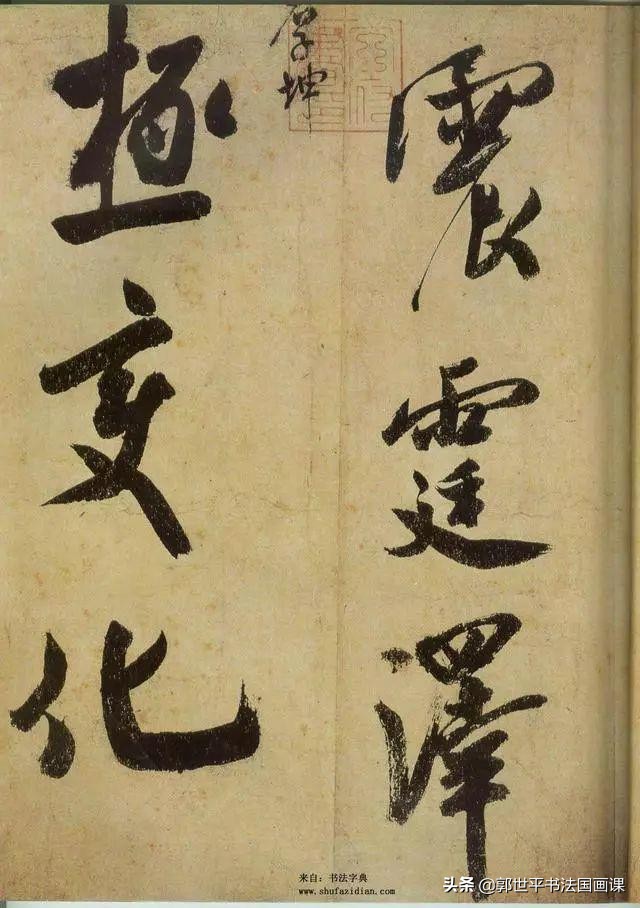 震霆澤
厚坤
極變化
来自：书法字典
www.shufazidian.com
头条 @郭世平书法国画课